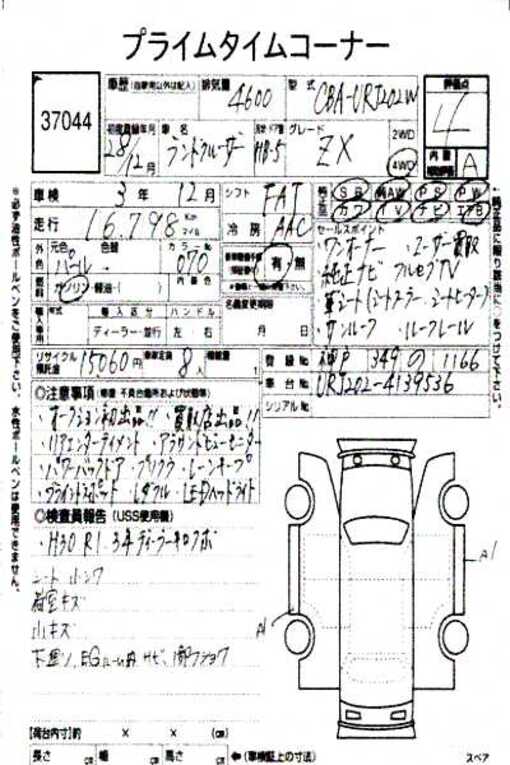 プライムタイムコーナー
37044
車歴 (自家用以外は記入) 排気量 4600 型式 CBA-URJ202W
評価点 4
初度登録年月 28/12月 車名 ランドクルーザー 形状 ドア数 HB-5 グレード ZX 2WD 4WD
内装 A
車検 3年 12月 シフト FAT
SR AW PS PW
カワ TV ナビ エアB
走行 16.798 Km 冷房 AAC
セールスポイント
・ワンオーナー ・ユーザー買取
外色 元色 パール 色替 カラーNo 070 内装色
有・無
・純正ナビ フルセグTV
燃料 ガソリン・軽油・( )
・革シート(シートエアコン、シートヒーター)
年式 輸入区分 ハンドル
ディーラー・並行 左・右
名義変更期限 月 日
・サンルーフ ・ルーフレール
リサイクル預託金 15060円 乗車定員 8人 積載量
登録No 349 の 1166
車台No URJ202-4139536
シリアルNo
◎注意事項 (修復・不具合箇所および状態等)
・オークション初出品!! ・買取店出品!!
・リアエンターテイメント ・アラウンドビューモニター
・パワーバックドア ・プリクラ ・レーンキープ
・ブラインドスポット LダウルLEDヘッドライト
◎検査員報告 (USS使用欄)
・H30 R1.3年ディーラーキロクボ
シート
荷室キズ
小キズ
下廻り、EGルーム内サビ、
A1
A1
【荷台内寸】約 × × (cm)
長さ cm 幅 cm 高さ cm ←(車検証上の寸法)
スペア
※必ず油性ボールペンをご使用下さい。水性ボールペンは使用できません。
※純正品に限り該当に○をつけて下さい。